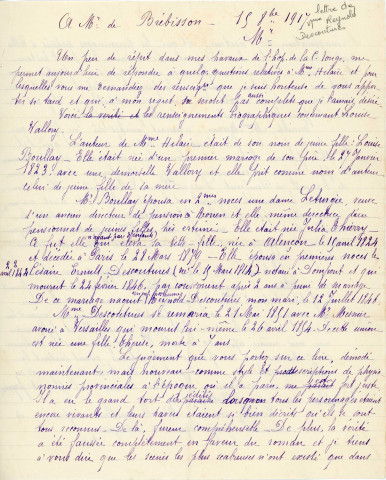 A Mr de Brébisson - 15 8bre 1917
lettre de Mme Reynold Descoutures
Mr
Un peu de répit dans mes travaux de l'hôp. de la C. Rouge, me
permet aujourd'hui de répondre à quelques questions relatives à Mme Helair et par
lesquelles vous me demandiez des renseignts que je suis honteuse de vous appor-
ter si tard et qui, à mon regret, ne seront pas aussi complets que j'aurais désiré.
Voici la vérité et les renseignements biographiques concernant Louise
Vallory.
L'auteur de Mme Helair était de son nom de jeune fille : Louise
Boullay - Elle était née d'un premier mariage de son père le 2 Janvier
1823 avec une demoiselle Vallory et elle prit comme nom d'auteur
celui de jeune fille de sa mère
Mr Boullay épousa en 2mes noces une dame veuve
d'un ancien directeur de pension à et elle même directrice d'un
pensionnat de jeunes filles très estimé - Elle était née Julia
Ce fut elle qui éleva sa belle-fille, née à Alençon le 15 avril 1824
et décédée à Paris le 21 Mars 1879 - Elle épousa en premières noces le
avril 1842 Césaire Ernult Descoutures (né le 15 Mars 1814) notaire à Domfront et qui
mourut le 24 février 1846, par conséquent après 2 ans à peine de mariage
De ce mariage naquit Reynold Descoutures mon mari, le 12 Juillet 1841.
Mme Descoutures se remaria le 21 Mai 1851 avec Mr Mesnier
avoué à Versailles qui mourut lui-même le 26 avril 1854. De cette union
est née une fille Thérèse, morte à 7 ans
Le jugement que vous portez sur ce livre, démodé
maintenant mais nouveau comme style et descriptions de physio-
nomies provinciales à l'époque où il a paru, me juste
Il a eu le grand tort de paraître lorsque tous les personnages étaient
encore vivants et leurs travers étaient si bien décrits qu'ils se sont
tous reconnus. De là, fureur compréhensible De plus, la vérité
a été faussée complètement en faveur du roman et je tiens
à vous dire que les scènes les plus scabreuses n'ont existé que dans